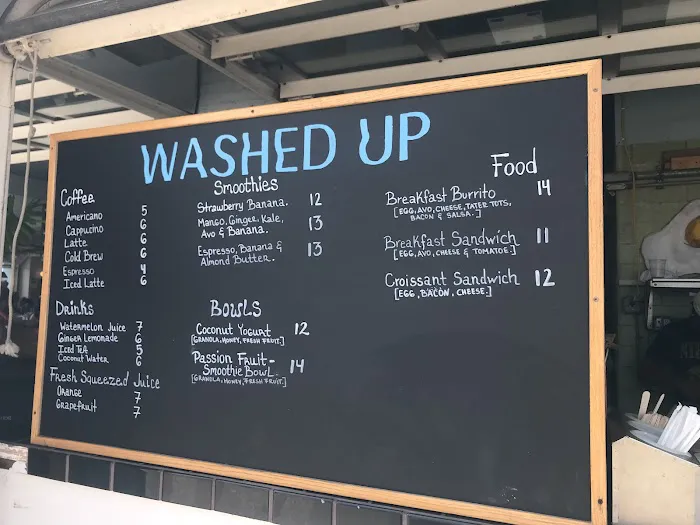 WASHED UP
Coffee
Americano 5
Cappucino 6
Latte 6
Cold Brew 6
Espresso 4
Iced Latte 6
Drinks
Watermelon Juice 7
Ginger Lemonade 6
Iced Tea 5
Coconut Water 6
Fresh Squeezed Juice
Orange 7
Grapefruit 7
Smoothies
Strawberry Banana. 12
Mango, Ginger, Kale, 13
Avo & Banana.
Espresso, Banana & 13
Almond Butter.
Bowls
Coconut Yogurt 12
[GRANOLA, HONEY, FRESH FRUIT.]
Passion Fruit - 14
Smoothie Bowl.
[GRANOLA, HONEY, FRESH FRUIT.]
Food
Breakfast Burrito 14
[EGG, AVO, CHEESE, TATER TOTS,
BACON & SALSA.]
Breakfast Sandwich 11
[EGG, AVO, CHEESE & TOMATOE.]
Croissant Sandwich 12
[EGG, BACON, CHEESE.]